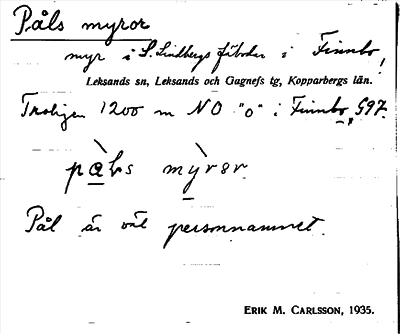 Påls myror
myr i S. Lindbergs fäbodar i Finnbo,
Leksands sn, Leksands och Gagnefs tg, Kopparbergs län.
Troligen 1200 m NO "o" i Finnbo, G97.
på̀ls mỳrər
Pål är väl personnamnet.
ERIK M. CARLSSON, 1935.